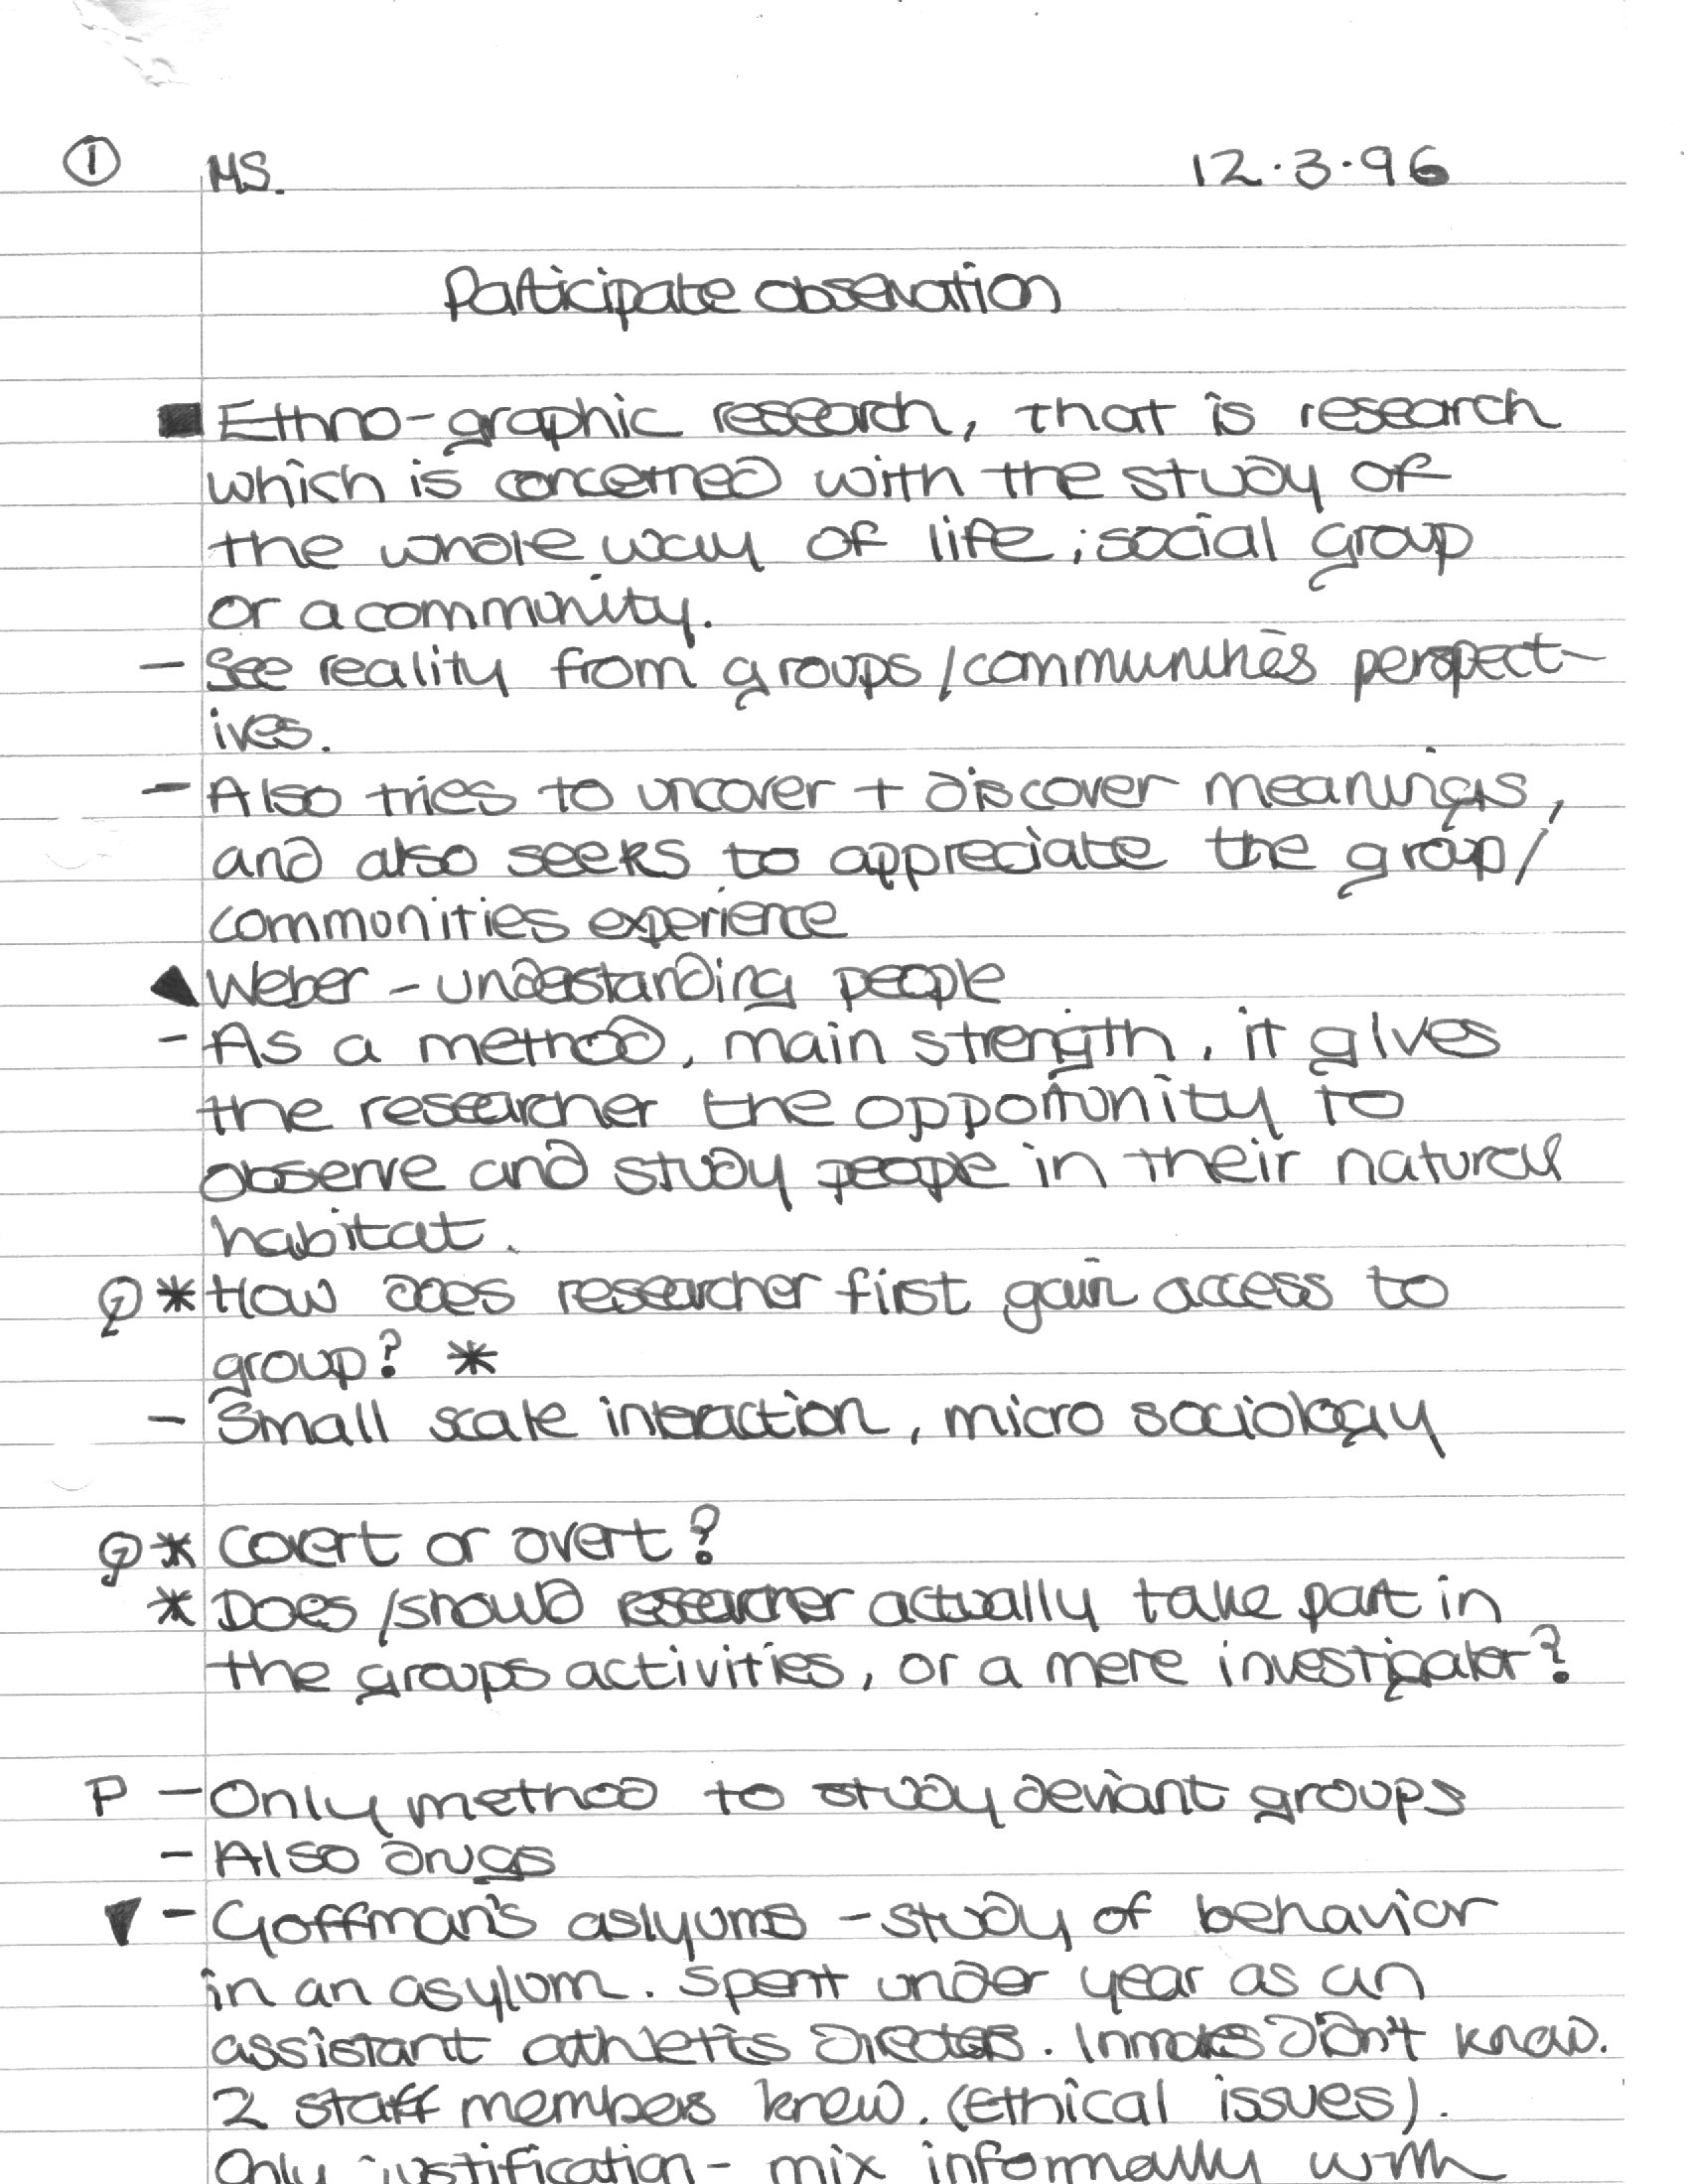 ① MS. 12.3.96
Participate observation
■ Ethno-graphic research, that is research
which is concerned with the study of
the whole way of life; social group
or a community.
- See reality from groups/communities perspect-
ives.
- Also tries to uncover + discover meanings,
and also seeks to appreciate the group/
communities experience
▲ Weber - understanding people
- As a method, main strength, it gives
the researcher the opportunity to
observe and study people in their natural
habitat.
Q * How does researcher first gain access to
group? *
- Small scale interaction, micro sociology
Q * Covert or overt?
* Does /should researcher actually take part in
the groups activities, or a mere investigator?
P - Only method to study deviant groups
- Also drugs
▼ - Goffman's aslyums - study of behavior
in an asylum. Spent under year as an
assistant athletis directors. Inmates didn't know.
2 staff members knew. (Ethical issues).
Only justification - mix informally with